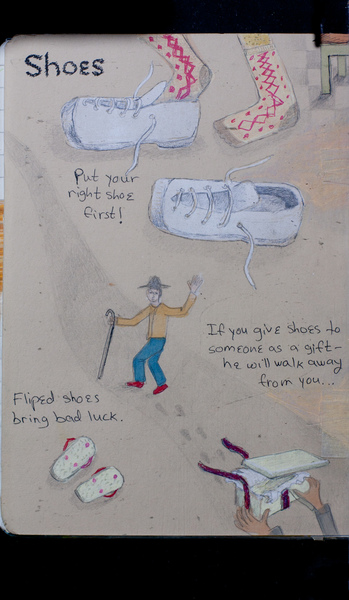 Shoes
Put your
right shoe
first!
If you give shoes to
someone as a gift-
he will walk away
from you...
Fliped shoes
bring bad luck.